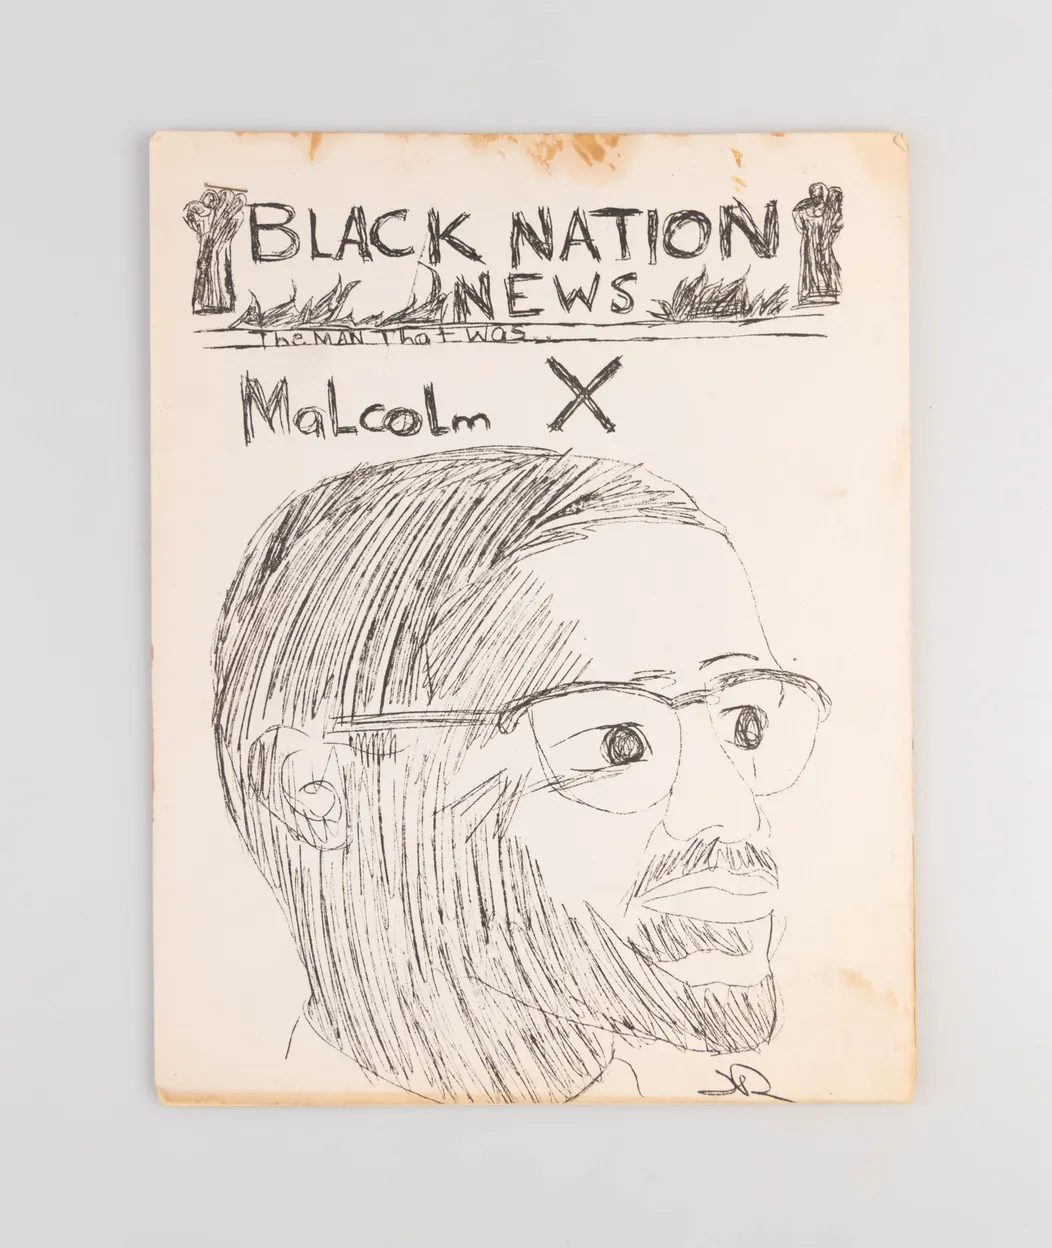 BLACK NATION
NEWS
The MAN That Was...
MaLcoLm X